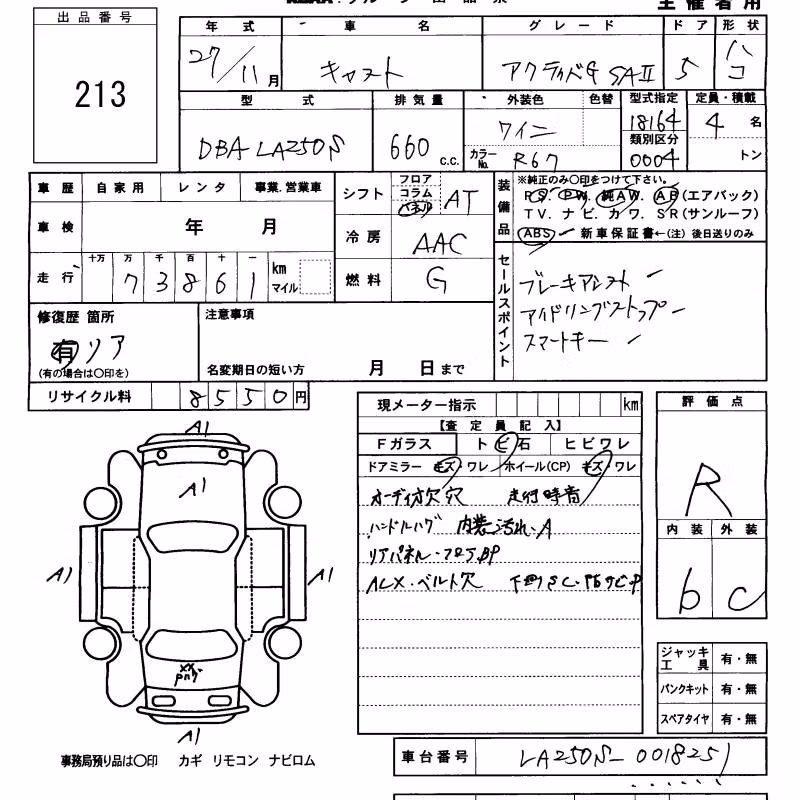 主催者用
出品番号
213
年式 車名 グレード ドア 形状
27/11月 キャスト アクティバG SAⅡ 5 ハコ
型式 排気量 外装色 色替 型式指定 定員・積載
DBA LA250S 660 c.c. ワイン カラーNo. R67 18164 類別区分 0004 4名 トン
車歴 自家用 レンタ 事業.営業車
車検 年 月
走行 十万 万 千 百 十 一 km マイル
73861
シフト フロア コラム パネル AT
冷房 AAC
燃料 G
装備品
※純正のみ○印をつけて下さい。
PS. PW. 純AW. AB(エアバック)
TV. ナビ. カワ. SR(サンルーフ)
ABS 新車保証書←(注) 後日送りのみ
セールスポイント
ブレーキアシスト
アイドリングストップ
スマートキー
修復歴 箇所
有 リア
(有の場合は○印を)
注意事項
名変期日の短い方 月 日まで
リサイクル料 8550円
現メーター指示 km
【査定員記入】
Fガラス トビ石 ヒビワレ
ドアミラー キズ・ワレ ホイール(CP) キズ・ワレ
オーディオ欠穴 走行時音
ハンドルハゲ 内装汚れ・A
リアパネル
ベルト穴
評価点
R
内装 外装
b c
A1
A1
A1 A1
XX
A1
ジャッキ 工具 有・無
パンクキット 有・無
スペアタイヤ 有・無
事務局預り品は○印 カギ リモコン ナビロム
車台番号 LA250S-0018251